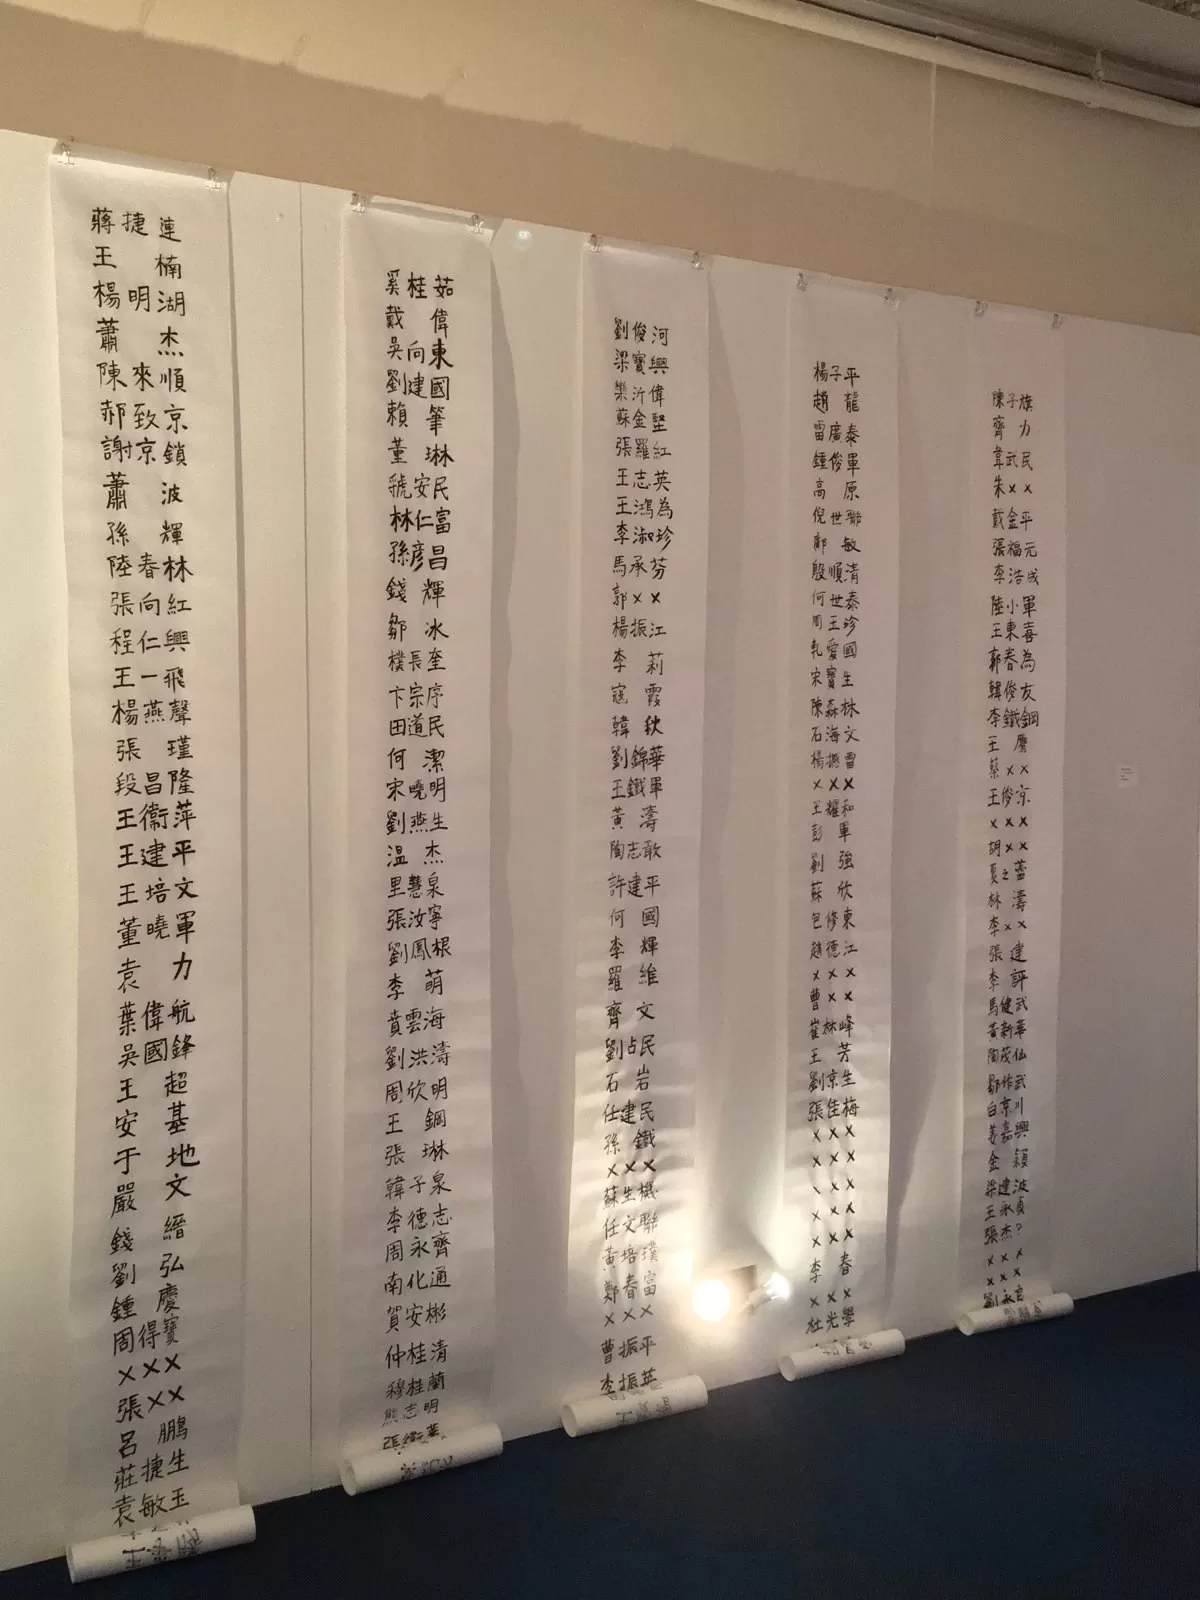 蔣捷連
王楠
楊明湖
蕭杰
陳來順
郝致京
謝京鎖
蕭波
孫輝
陸春林
張向紅
程仁興
王一飛
楊燕聲
張瑾
段昌隆
王衞萍
王建平
王培文
董曉軍
袁力
葉偉航
吳國鋒
王超
安基
于地
嚴文
錢縉
劉弘
鍾慶
周得寶
×××
張××
呂鵬
莊捷生
袁敏玉
奚桂茹
戴偉
吳向東
劉建國
賴筆
董琳
虢安民
林仁富
孫彥昌
錢輝
鄒冰
樸長奎
卞宗序
田道民
何潔
宋曉明
劉燕生
溫杰
里慧泉
張汝寧
劉鳳根
李萌
賁雲海
劉洪濤
周欣明
王鋼
張琳
韓子泉
李德志
周永齊
南化通
賀安彬
仲桂清
穆桂蘭
熊志明
張衞華
劉俊河
梁寶興
樂沂偉
蘇金堅
張羅紅
王志英
王鴻為
李淑珍
馬承芬
郭××
楊振江
李莉
寇霞
韓秋
劉錦華
王鐵軍
黃濤
陶志敢
許建平
何國
李輝
羅維
齊文
劉占民
石岩
任建民
孫鐵
×××
蘇生機
任文聯
黃培璞
鄭春富
×××
曹振平
李振英
楊子平
趙龍
雷廣泰
鍾俊軍
高原
倪世聯
鄺敏
殷順清
何世泰
周玉珍
軋愛國
宋寶生
陳森林
石海文
楊振雷
×××
王耀和
彭軍
劉強
蘇欣
包修東
趙德江
×××
曹××
崔林峰
王芳
劉京生
張佳梅
×××
×××
×××
×××
×××
李春
×××
杜光學
陳子旗
齊力
韋武民
朱××
戴金平
張福元
李浩成
陸小軍
王東喜
郭春為
韓俊友
李鐵鋼
王磨
蔡××
王俊京
×××
胡××
夏之蕾
林濤
李××
張建
李評
馬健武
黃新華
陶茂仙
鄒作武
白京川
姜嘉興
金穎
梁建波
王永貞
張杰?
×××
×××